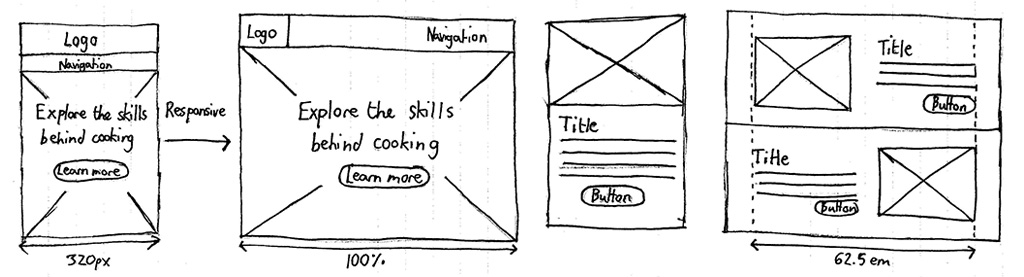 Logo
Navigation
Explore the skills
behind cooking
Learn more
320px
Responsive
Logo
Navigation
Explore the skills
behind cooking
Learn more
100%
Title
Button
Title
Button
Title
Button
62.5 em